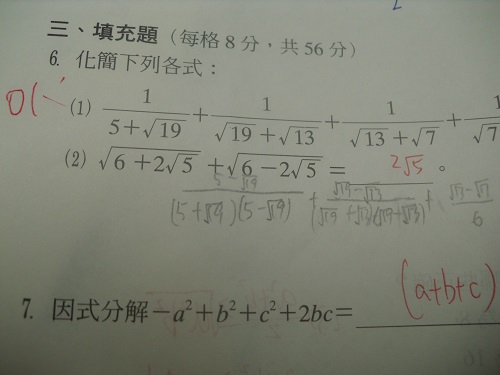 三、填充題（每格8分，共56分）
6. 化簡下列各式：
(1) 1/(5+√19) + 1/(√19+√13) + 1/(√13+√7) + 1/√7
(2) √(6+2√5) + √(6-2√5) = 2√5 。
(5-√19)/((5+√19)(5-√19)) + (√19-√13)/((√19+√13)(√19+√13)) + (√13-√7)/6
7. 因式分解-a²+b²+c²+2bc= (a+b+c)